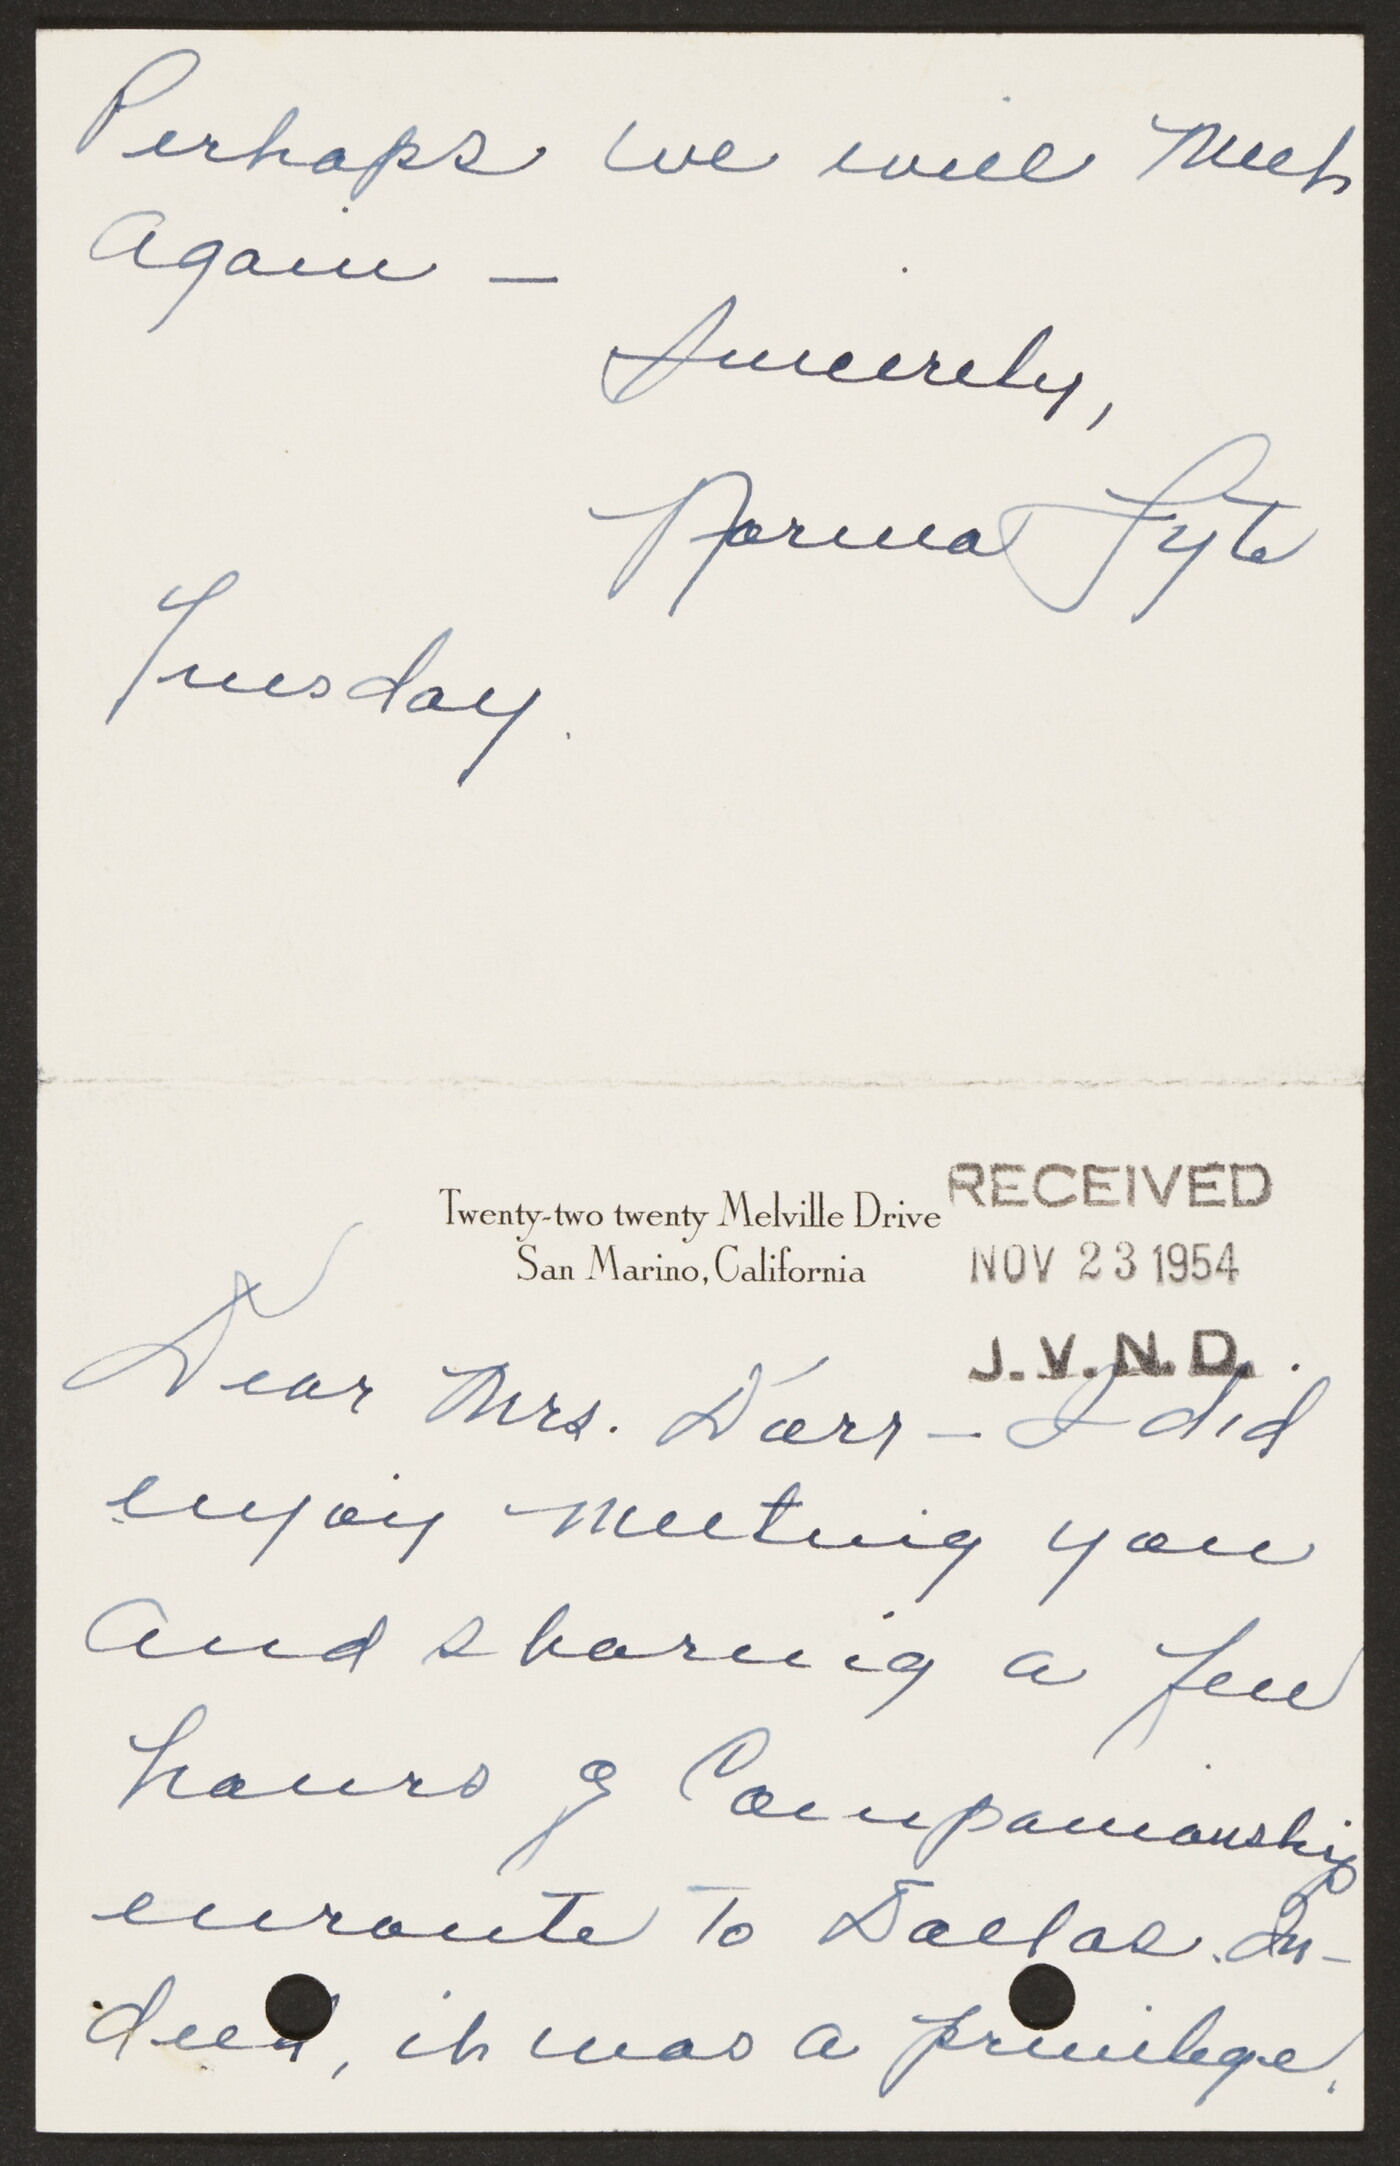 Perhaps we will meet
again —
Sincerely,
Norma Fyte
Tuesday.
Twenty-two twenty Melville Drive
San Marino, California
RECEIVED
NOV 23 1954
J.V.N.D.
Dear Mrs. Darr — I did
enjoy meeting you
and sharing a few
hours of Companionship
enroute to Dallas. In-
deed, it was a privilege.